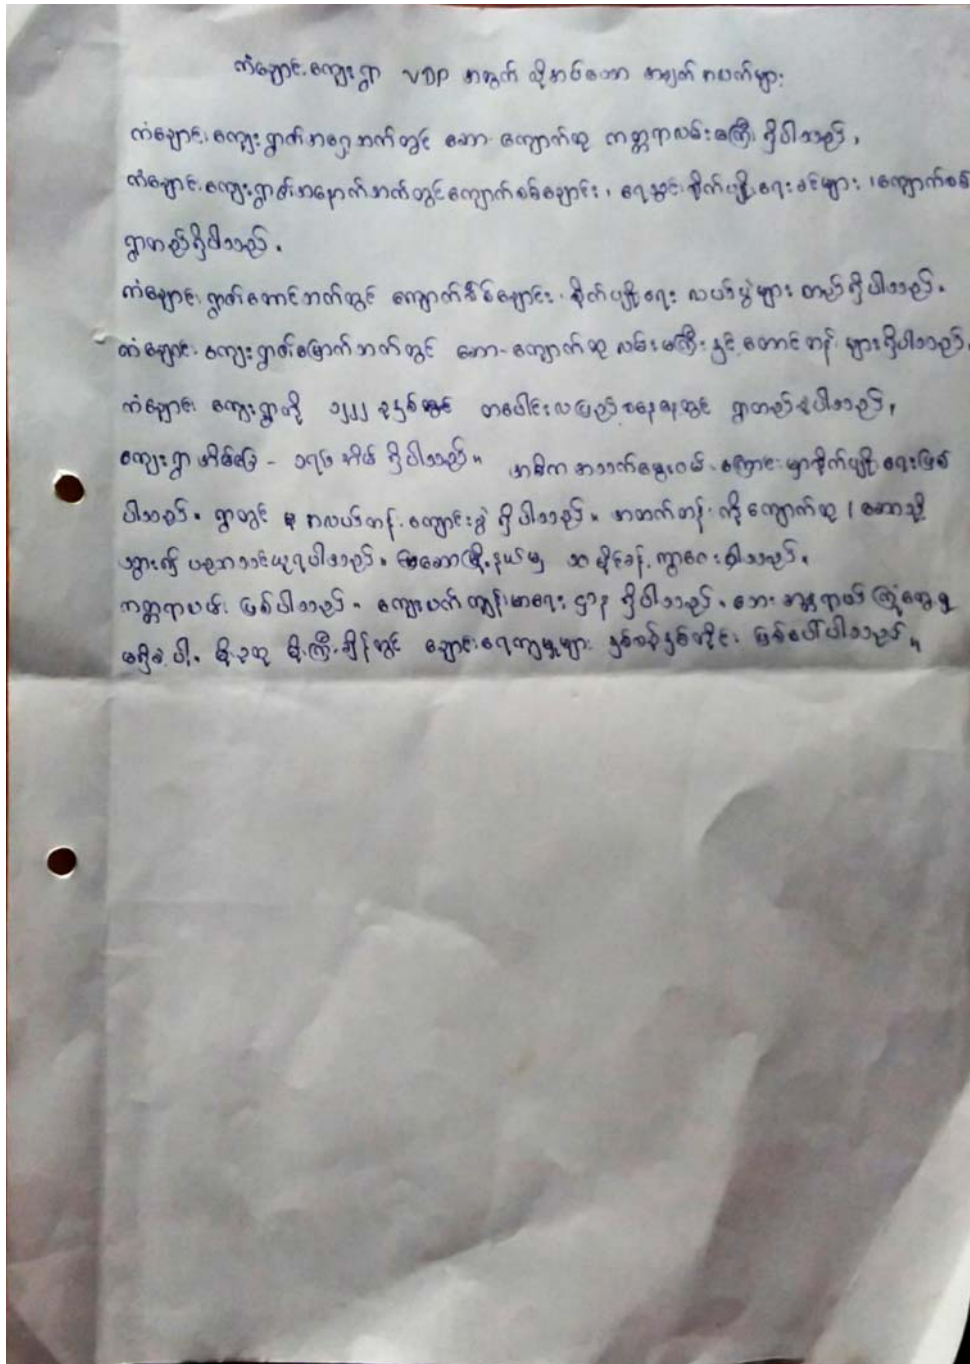 ကံချောင်းကျေးရွာ VDP အတွက် လိုအပ်သော အချက်အလက်များ
ကံချောင်းကျေးရွာ၏အရှေ့ဘက်တွင် ဆော-ကျောက်ထု ကတ္တရာလမ်းမကြီး ရှိပါသည်၊
ကံချောင်းကျေးရွာ၏အနောက်ဘက်တွင်ကျောက်စစ်ချောင်း၊ ရေသွင်းစိုက်ပျိုးရေးခင်းများ ၊ကျောက်စစ်
ရွာတည်ရှိပါသည်။
ကံချောင်းရွာ၏တောင်ဘက်တွင် ကျောက်စစ်ချောင်း၊ စိုက်ပျိုးရေး လယ်ကွဲများ တည်ရှိပါသည်။
ကံချောင်းကျေးရွာ၏မြောက်ဘက်တွင် ဆော-ကျောက်ထု လမ်းမကြီးနှင့် တောင်တန်းများရှိပါသည်။
ကံချောင်း ကျေးရွာကို ခုနှစ်တွင် တပေါင်းလပြည့် နေ့တွင် ရွာတည်ခဲ့ပါသည်၊
ကျေးရွာအိမ်ခြေ - အိမ် ရှိပါသည်။ အဓိကအသက်မွေးဝမ်းကြောင်းမှာစိုက်ပျိုးရေးဖြစ်
ပါသည်။ ရွာတွင် မူ အလယ်တန်းကျောင်းခွဲ ရှိပါသည်။ အထက်တန်းကို ကျောက်ထု ၊ ဆောသို့
သွား၍ ပညာသင်ယူရပါသည်။ ဆောမြို့နယ်မှ ကွာဝေးပါသည်။
ကတ္တရာလမ်း ဖြစ်ပါသည်။ ကျေးလက်ကျန်းမာရေး ဌာန ရှိပါသည်။ ဘေးအန္တရာယ်ကြုံတွေ့မှု
မရှိခဲ့ပါ။ မိုးရာသီ မိုးကြီးချိန်တွင် ချောင်းရေကျမှုများ နှစ်စဉ်နှစ်တိုင်း ဖြစ်ပေါ်ပါသည်။